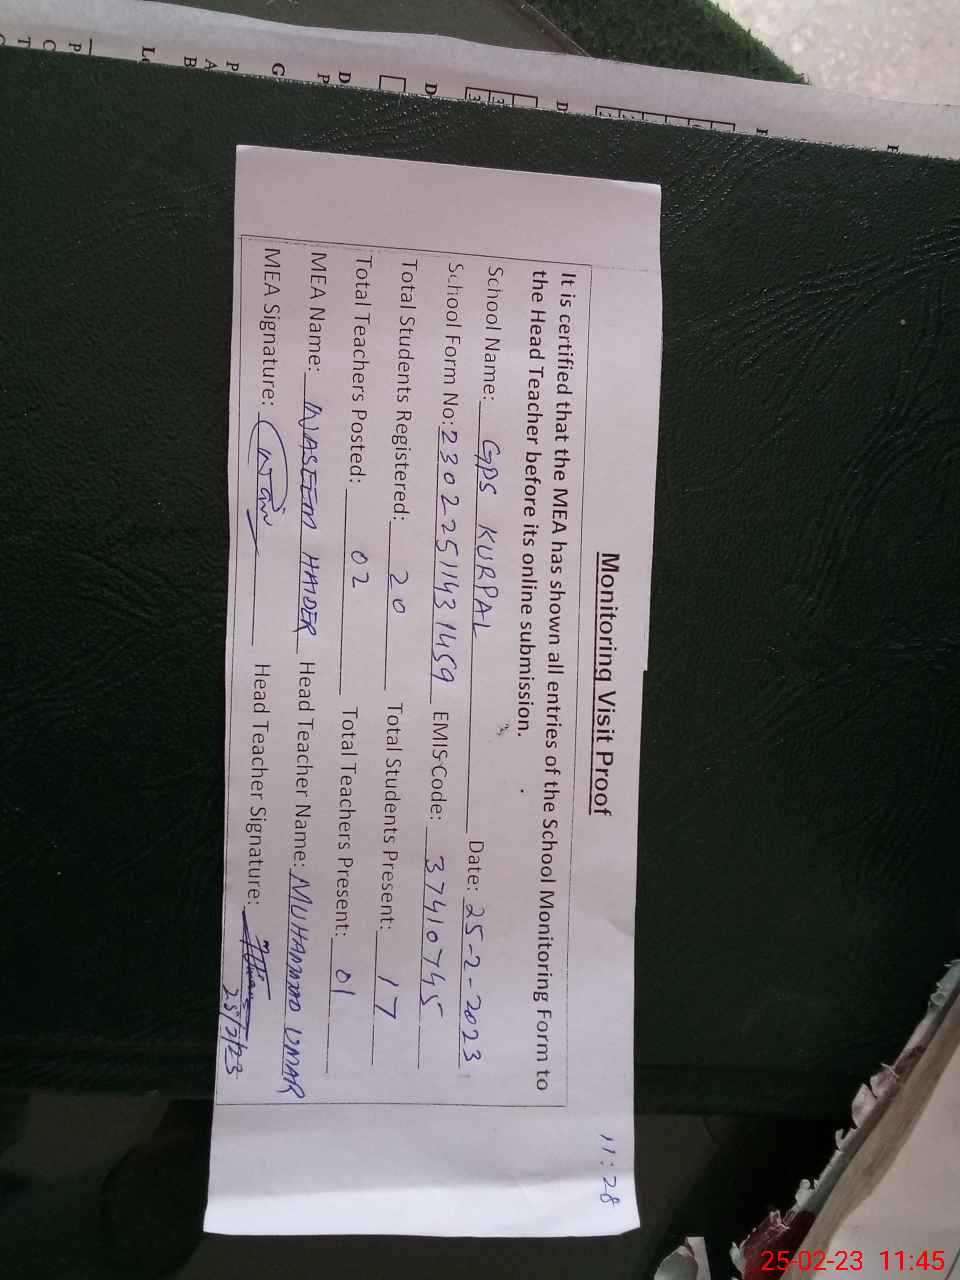 11:28
Monitoring Visit Proof
It is certified that the MEA has shown all entries of the School Monitoring Form to
the Head Teacher before its online submission.
School Name: GPS KURPAL Date: 25-2-2023
School Form No: 23022511431459 EMIS Code: 37410745
Total Students Registered: 20 Total Students Present: 17
Total Teachers Posted: 02 Total Teachers Present: 01
MEA Name: WASEEM HAIDER Head Teacher Name: MUHAMMAD UMAR
MEA Signature: Head Teacher Signature:
25/2/23
25-02-23 11:45